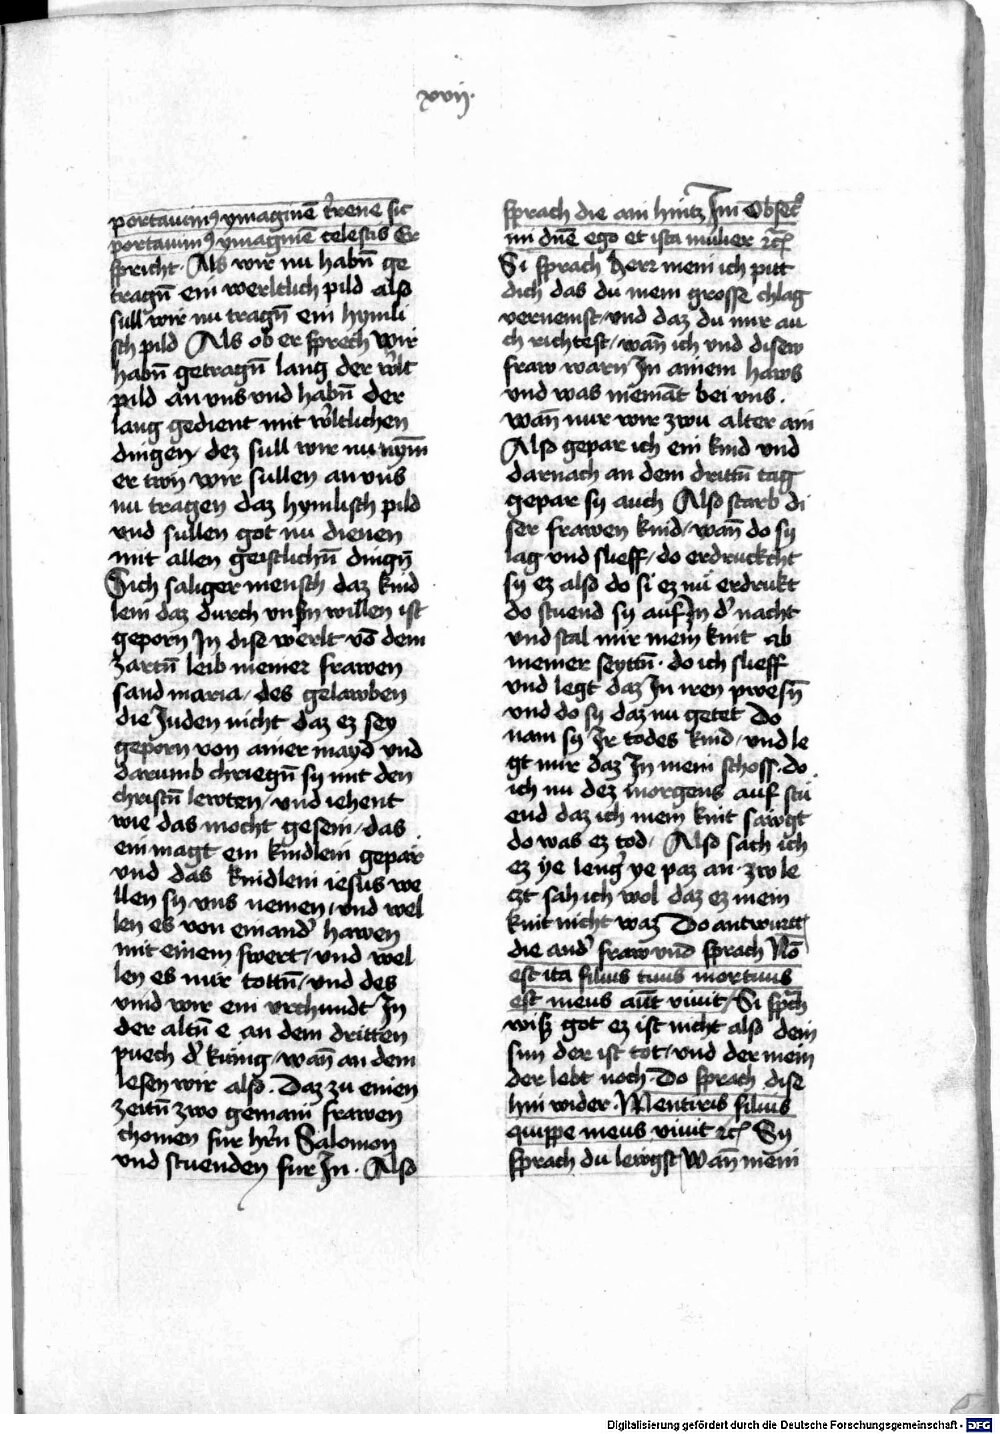 xvij.
portauimꝰ ymaginē t'rene sic
portauimꝰ ymaginē celestis Er
spricht. Als wir nu habn̄ ge
tragn̄ ein werltlich pild also
sull wir nu tragn̄ ein hymli
sch pild Als ob er sprech Wir
habn̄ getragn̄ lang der w'lt
pild an vns vnd habn̄ der
lang gedient mit w'ltlichen
dingen dez sull wir nu nym̄
er twn wir sullen an vns
nu tragen daz hymlisch pild
vnd sullen got nu dienen
mit allen geistlichn̄ dingn̄
Sich saliger mensch daz kind
lein daz durch vnsn̄ willen ist
geporn Jn dise werlt vō dem
zartn̄ leib meiner frawen
sand maria / des gelawben
die Juden nicht daz ez sey
geporn von ainer mayd vnd
darumb chriegn̄ sy mit den
christn̄ lewten / vnd iehent
wie das mocht gesein / das
ein magt ein kindlein gepar
vnd das kindlein iesus we
llen sy vns nemen / vnd wel
len es von einand' hawen
mit einem swert / vnd wel
len es nur tottn̄ / vnd des
vind wir ein vrchundt Jn
der altn̄ e an dem dritten
puech d' kunig / wan̄ an dem
lesen wir also. Daz zu einen
zeitn̄ zwo gemain frawen
chomen fur hr̄n Salomon
vnd stuenden fur Jn. Also
sprach die ain hintz Jm Obsecᵒ
mi dn̄e ego et ista mulier ⁊c̄
Si sprach Herr mein ich pitt
dich das du mein grosse chlag
vernemst / vnd daz du mir au
ch richtest / wan̄ ich vnd disew
fraw warn Jn ainem haws
vnd was niemāt bei vns.
wan̄ nur wir zwu alter ain
Also gepar ich ein kind vnd
darnach an dem drittn̄ tag
gepar sy auch Also starb di
ser frawen kind / wan̄ do sy
lag vnd slieff / do erdruckcht
sy ez also do si ez nu erdrukt
do stuend sy auf Jn d' nacht
vnd stal mir mein kint ab
meiner seyttn̄. do ich slieff
vnd legt daz Jn iren pwesn̄
vnd do sy daz nu getet Do
nam sy Jr todes kind / vnd le
gt mir daz Jn mein schoss. do
ich nu dez morgens auf stu
end daz ich mein kint sawgt
do was ez tod / Also sach ich
ez ye leng' ye paz an. zw le
czt sah ich wol daz ez mein
kint nicht waz Do antwurtt
die and' fraw vnd sprach Nō
est ita filius tuus mortuus
est meus aūt viuit / Si sp̄ch
wiss got ez ist nicht also dein
sun der ist tot / vnd der mein
der lebt noch. Do sprach dise
hin wider. Mentiris filius
quippe meus viuit ⁊c̄ Sy
sprach du lewgst / Wan̄ mein
Digitalisierung gefördert durch die Deutsche Forschungsgemeinschaft - DFG